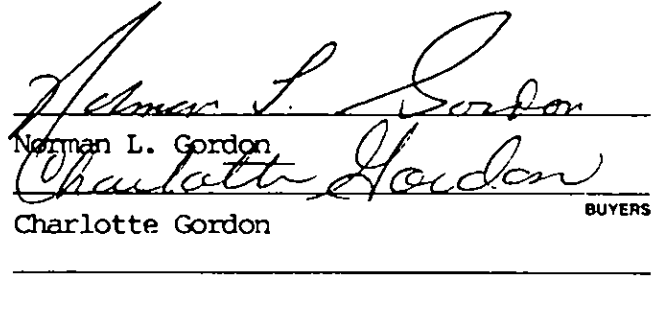 Norman L. Gordon
Norman L. Gordon
Charlotte Gordon
BUYERS
Charlotte Gordon